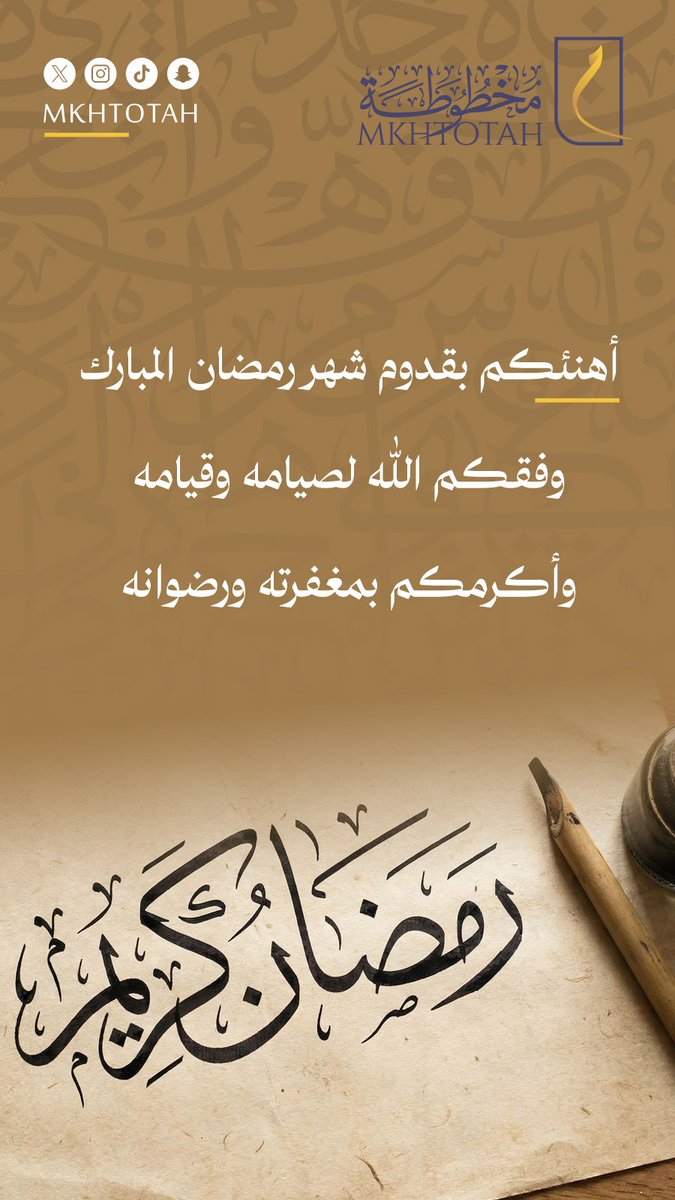 MKHTOTAH
مخطوطة
MKHTOTAH
أهنئكم بقدوم شهر رمضان المبارك
وفقكم الله لصيامه وقيامه
وأكرمكم بمغفرته ورضوانه
رمضان كريم